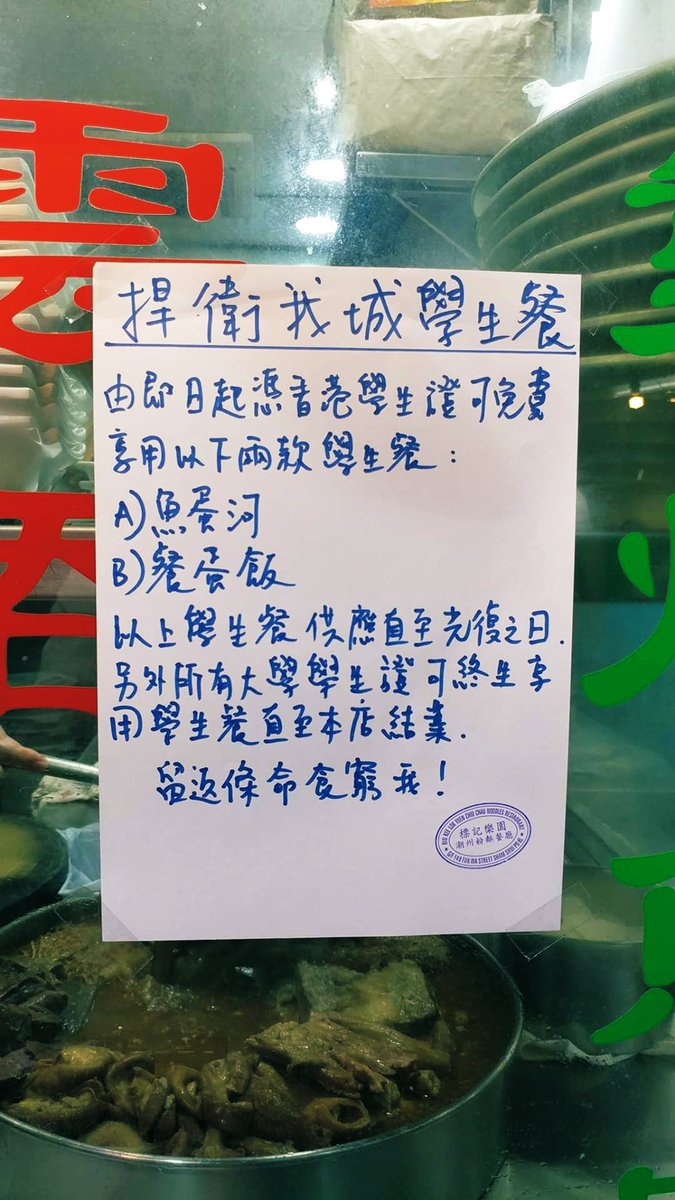 雲
吞
捍衛我城學生餐
由即日起憑香港學生證可免費
享用以下兩款學生餐：
A)魚蛋河
B)餐蛋飯
以上學生餐供應直至光復之日.
另外所有大學學生證可終生享
用學生餐直至本店結業.
留返條命食窮我!
BIU KEE LOK YUEN CHIU CHAU NOODLES RESTAURANT
標記樂園
潮州粉麵餐廳
G/F 149 FUK WA STREET SHAM SHUI PO KLN